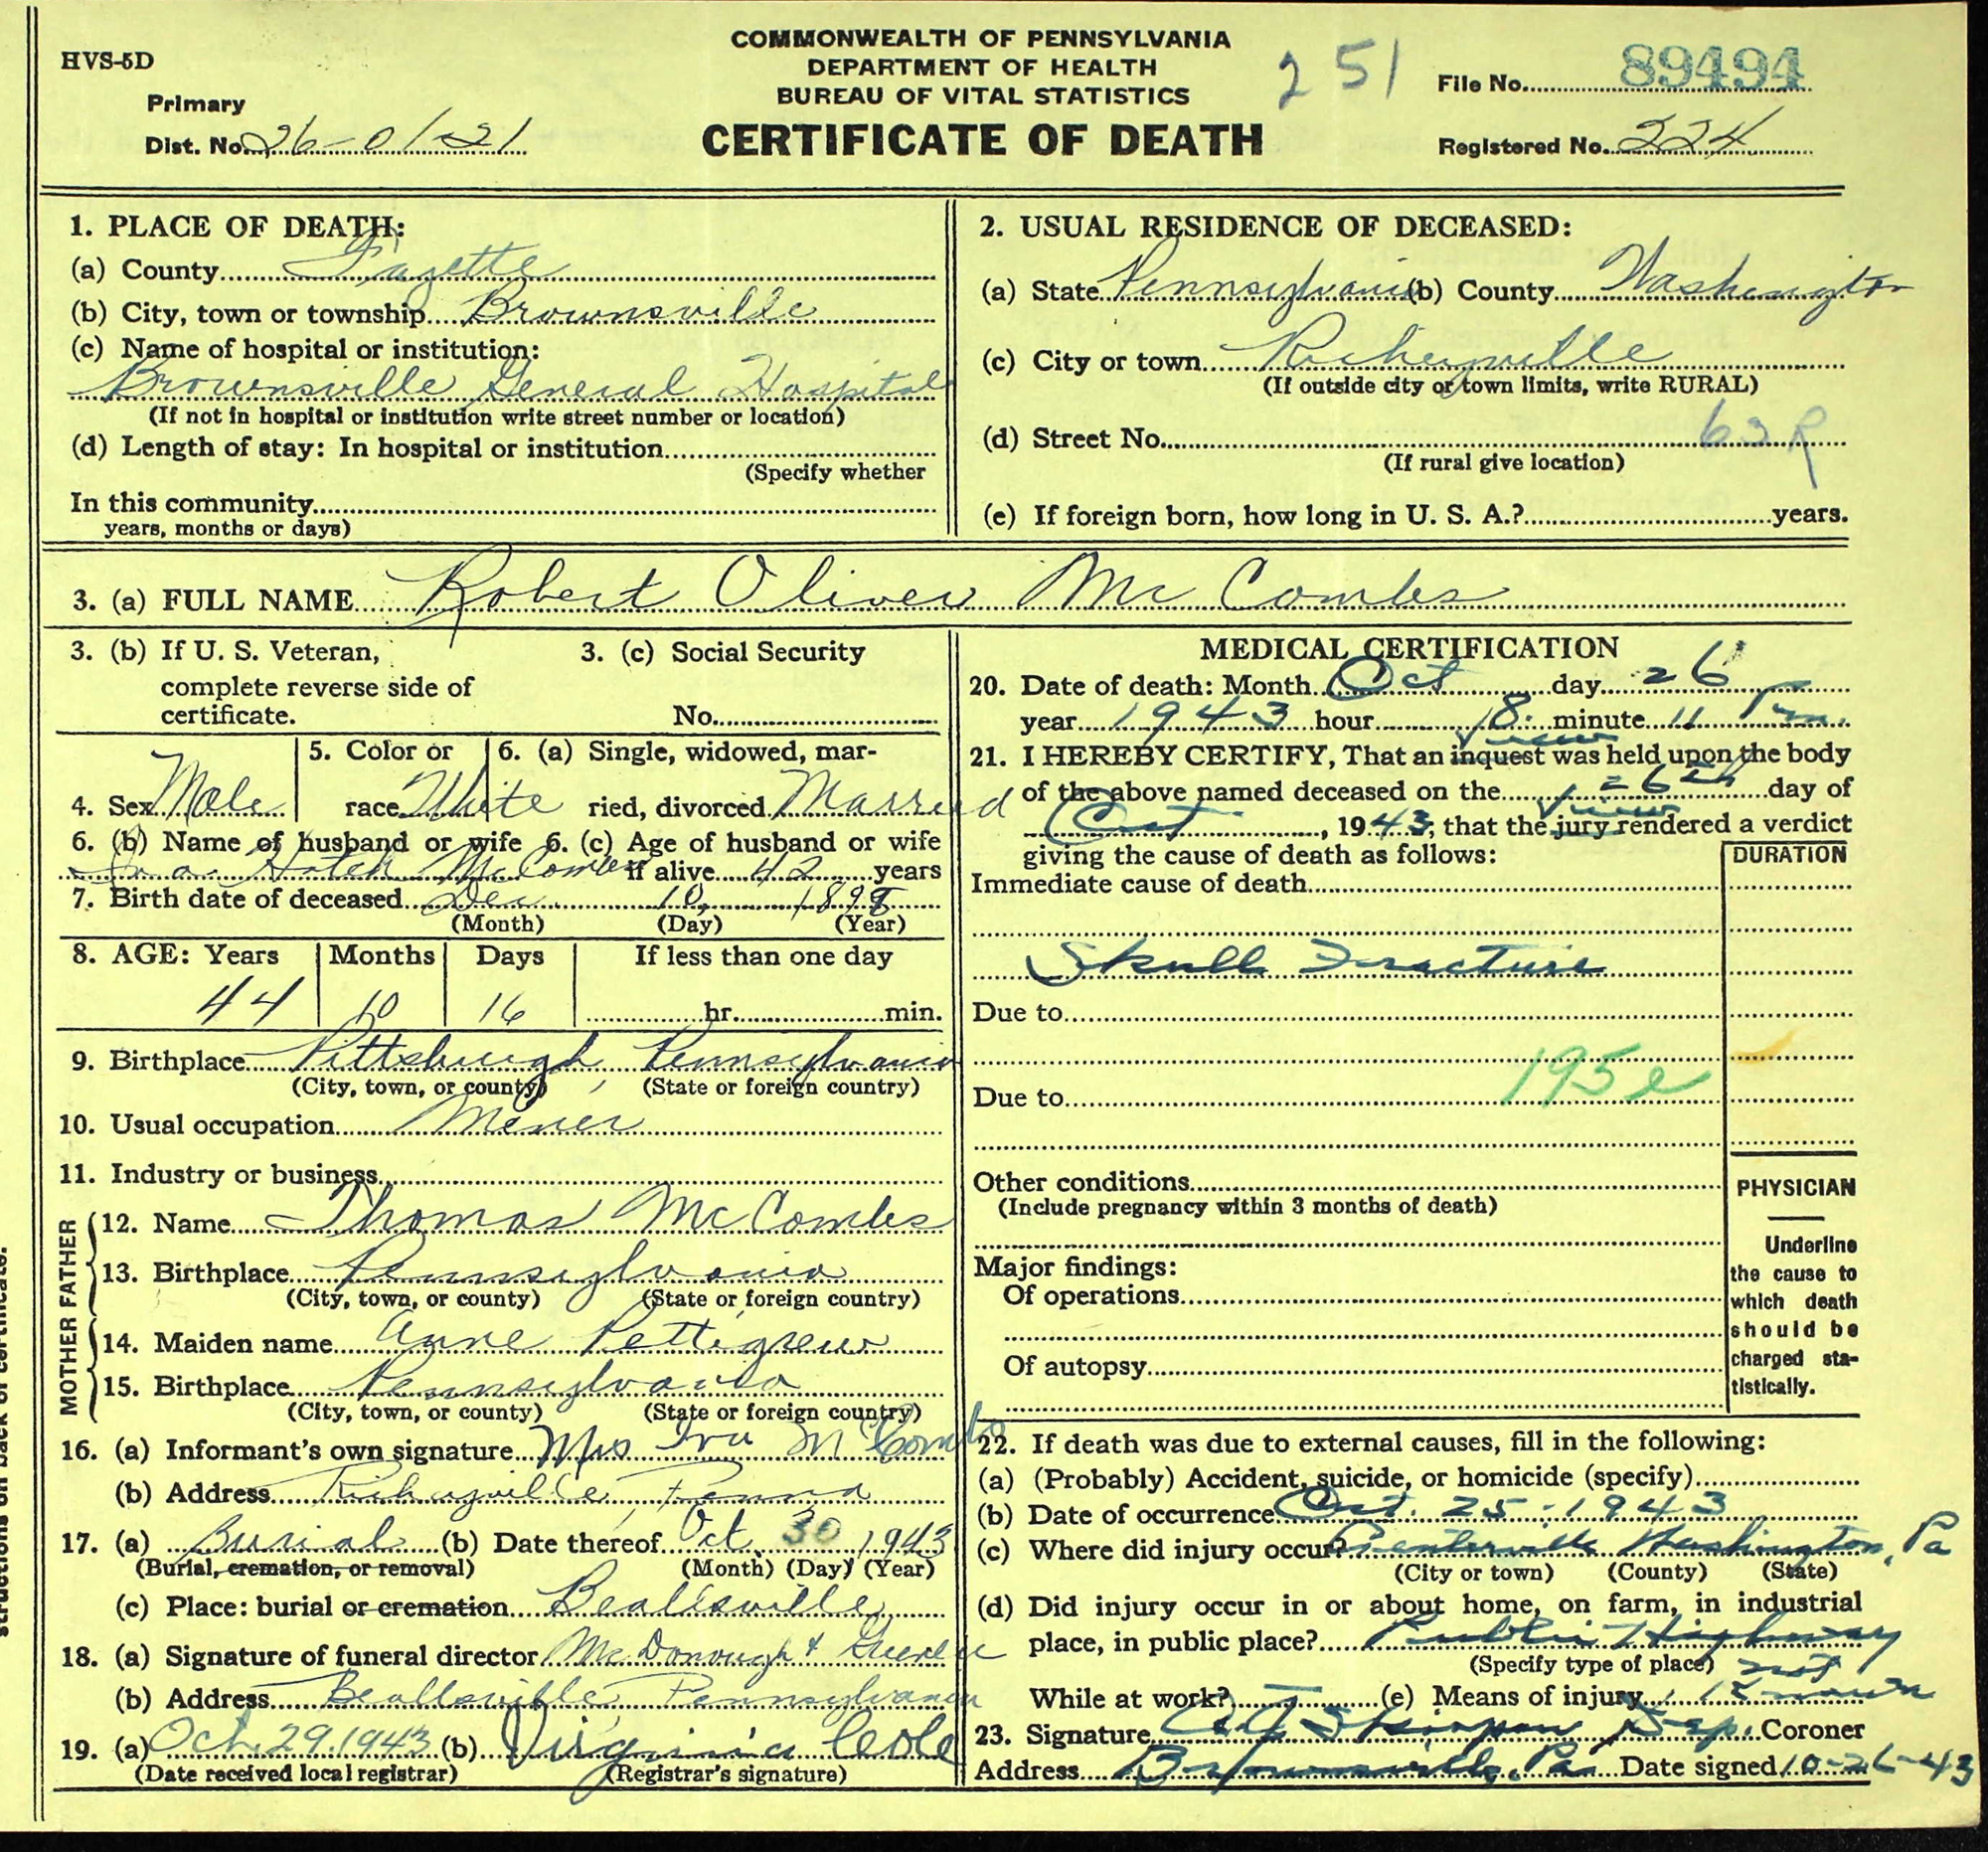 HVS-5D
COMMONWEALTH OF PENNSYLVANIA
DEPARTMENT OF HEALTH
BUREAU OF VITAL STATISTICS
CERTIFICATE OF DEATH
251
File No. 89494
Primary
Dist. No. 26-01-21
Registered No. 224
1. PLACE OF DEATH:
(a) County Fayette
(b) City, town or township Brownsville
(c) Name of hospital or institution:
Brownsville General Hospital
(If not in hospital or institution write street number or location)
(d) Length of stay: In hospital or institution
(Specify whether
In this community
years, months or days)
2. USUAL RESIDENCE OF DECEASED:
(a) State Pennsylvania (b) County Washington
(c) City or town Richeyville
(If outside city or town limits, write RURAL)
(d) Street No. 63R
(If rural give location)
(e) If foreign born, how long in U. S. A.? years.
3. (a) FULL NAME Robert Oliver Mc Combs
3. (b) If U. S. Veteran,
complete reverse side of
certificate.
3. (c) Social Security
No.
4. Sex Male
5. Color or
race White
6. (a) Single, widowed, mar-
ried, divorced Married
6. (b) Name of husband or wife 6. (c) Age of husband or wife
McCombs if alive 42 years
7. Birth date of deceased Dec 10, 1898
(Month) (Day) (Year)
8. AGE: Years Months Days If less than one day
44 10 16 hr. min.
9. Birthplace Pittsburgh, Pennsylvania
(City, town, or county) (State or foreign country)
10. Usual occupation Miner
11. Industry or business
FATHER
12. Name Thomas McCombs
13. Birthplace Pennsylvania
(City, town, or county) (State or foreign country)
MOTHER
14. Maiden name Anne Pettigrew
15. Birthplace Pennsylvania
(City, town, or county) (State or foreign country)
16. (a) Informant's own signature Mrs Iva McCombs
(b) Address Richeyville, Penna
17. (a) Burial (b) Date thereof Oct. 30 1943
(Burial, cremation, or removal) (Month) (Day) (Year)
(c) Place: burial or cremation Beallsville
18. (a) Signature of funeral director McDonough &
(b) Address Beallsville, Pennsylvania
19. (a) Oct. 29. 1943 (b) Virginia Cole
(Date received local registrar) (Registrar's signature)
MEDICAL CERTIFICATION
20. Date of death: Month Oct day 26
year 1943 hour 8: minute 11 Pm.
view
21. I HEREBY CERTIFY, That an inquest was held upon the body
of the above named deceased on the 26th day of
view
Oct, 1943, that the jury rendered a verdict
giving the cause of death as follows:
DURATION
Immediate cause of death
Skull Fracture
Due to
195e
Due to
Other conditions
(Include pregnancy within 3 months of death)
Major findings:
Of operations
Of autopsy
PHYSICIAN
Underline
the cause to
which death
should be
charged sta-
tistically.
22. If death was due to external causes, fill in the following:
(a) (Probably) Accident, suicide, or homicide (specify)
(b) Date of occurrence Oct. 25. 1943
(c) Where did injury occur? Centerville Washington, Pa
(City or town) (County) (State)
(d) Did injury occur in or about home, on farm, in industrial
place, in public place? Public Highway
(Specify type of place)
While at work? (e) Means of injury not Known
23. Signature Dep. Coroner
Address Brownsville, Pa Date signed 10-26-43